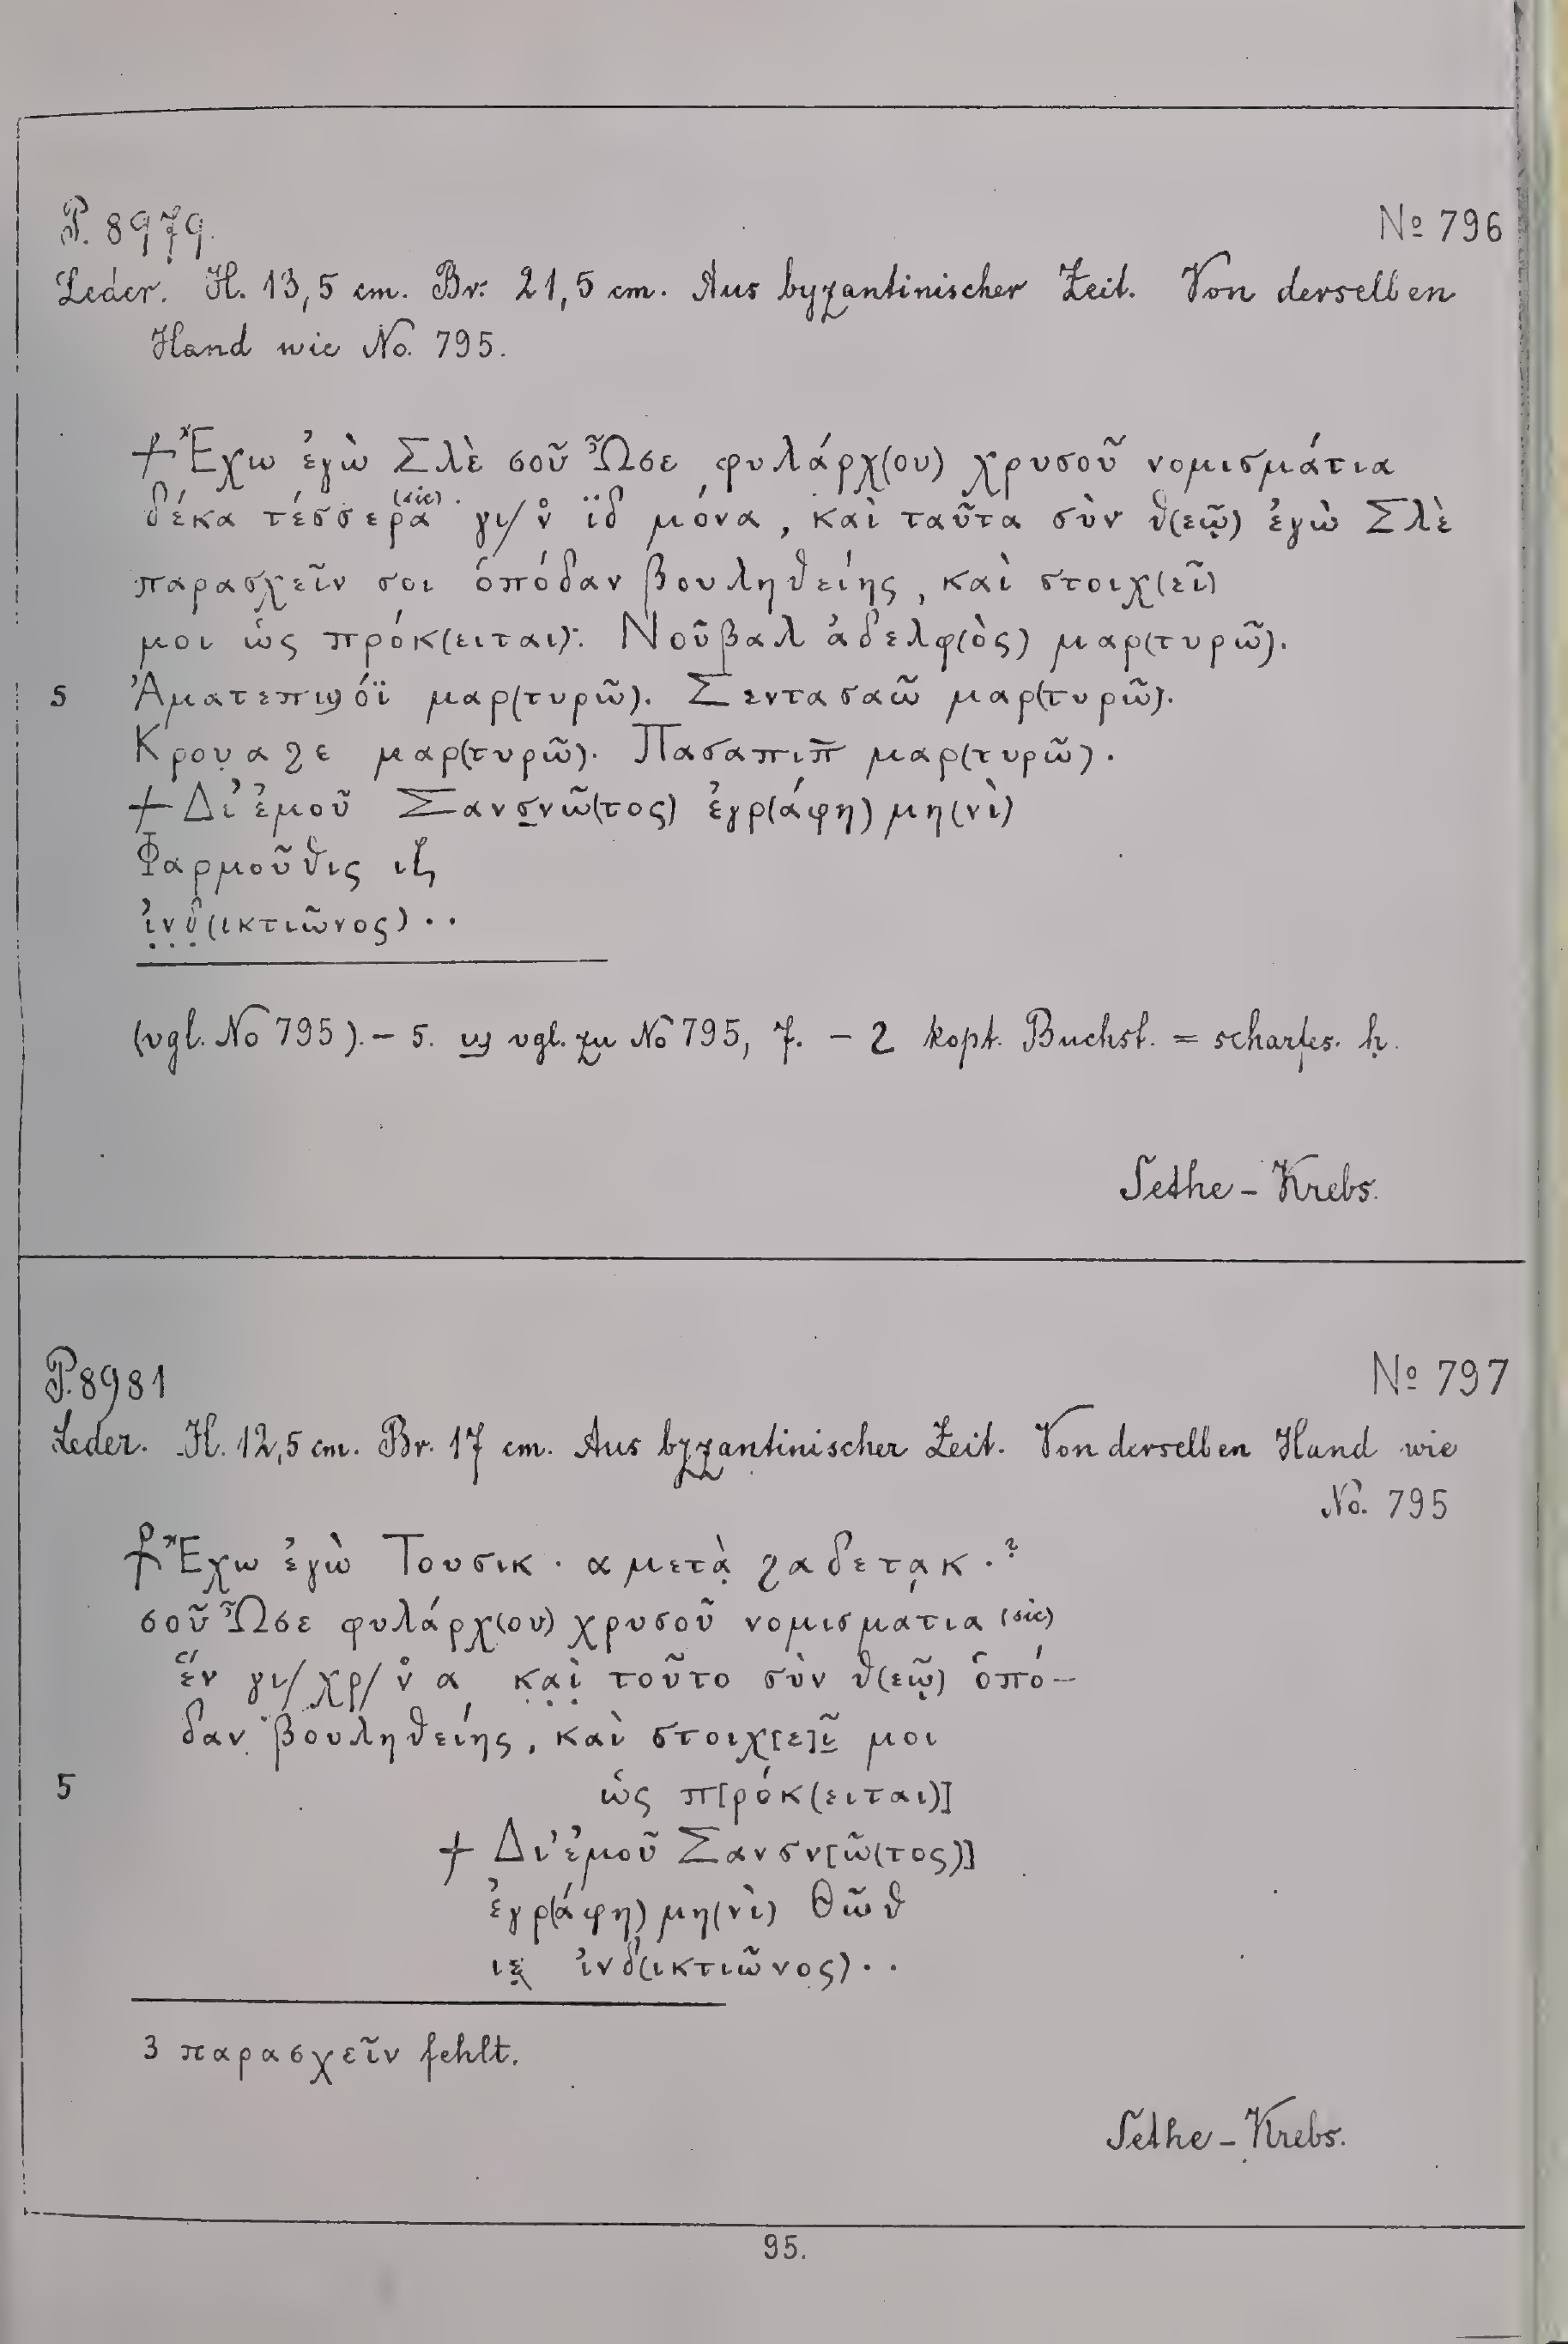 P. 8979.
№ 796
Leder. H. 13,5 cm. Br. 21,5 cm. Aus byzantinischer Zeit. Von derselben
Hand wie No. 795.
+ Ἔχω ἐγὼ Σλὲ σοῦ Ὦσε φυλάρχ(ου) χρυσοῦ νομισμάτια
δέκα τέσσερα (sic) γι/ ν̊ ϊδ μόνα, καὶ ταῦτα σὺν θ(εῷ) ἐγὼ Σλὲ
παρασχεῖν σοι ὁπόδαν βουληθείης, καὶ στοιχ(εῖ)
μοι ὡς πρόκ(ειται). Νοῦβαλ ἀδελφ(ὸς) μαρ(τυρῶ).
5 Ἀματεπιϣόϊ μαρ(τυρῶ). Σεντασαῶ μαρ(τυρῶ).
Κρου̣αϩε μαρ(τυρῶ). Πασαπιπ̅ μαρ(τυρῶ).
+ Δι' ἐμοῦ Σανσ̣νῶ(τος) ἐγρ(άφη) μη(νὶ)
Φαρμοῦθις ιζ
ἰ̣ν̣δ̣(ικτιῶνος) . .
(vgl. No 795). – 5. ϣ vgl. zu No 795, 7. – ϩ kopt. Buchst. = scharfes. ḥ.
Sethe – Krebs.
P. 8981
№ 797
Leder. H. 12,5 cm. Br. 17 cm. Aus byzantinischer Zeit. Von derselben Hand wie
No. 795
⳨ Ἔχω ἐγὼ Τουσικ . α μετὰ̣ ϩαδετα̣κ . ?
σοῦ Ὦσε φυλάρχ(ου) χρυσοῦ νομισμάτια (sic)
ἕν γι/ χρ/ ν̊ α κ̣α̣ὶ̣ τοῦτο σὺν θ(εῷ) ὁπό-
δαν βουληθείης, καὶ στοιχ[ε]ῖ̣ μοι
5 ὡς π[ρόκ(ειται)]
+ Δι' ἐμοῦ Σανσν[ῶ(τος)]
ἐγρ(άφη) μη(νὶ) Θῶθ
ιε̣ ἰνδ(ικτιῶνος) . .
3 παρασχεῖν fehlt.
Sethe – Krebs.
95.